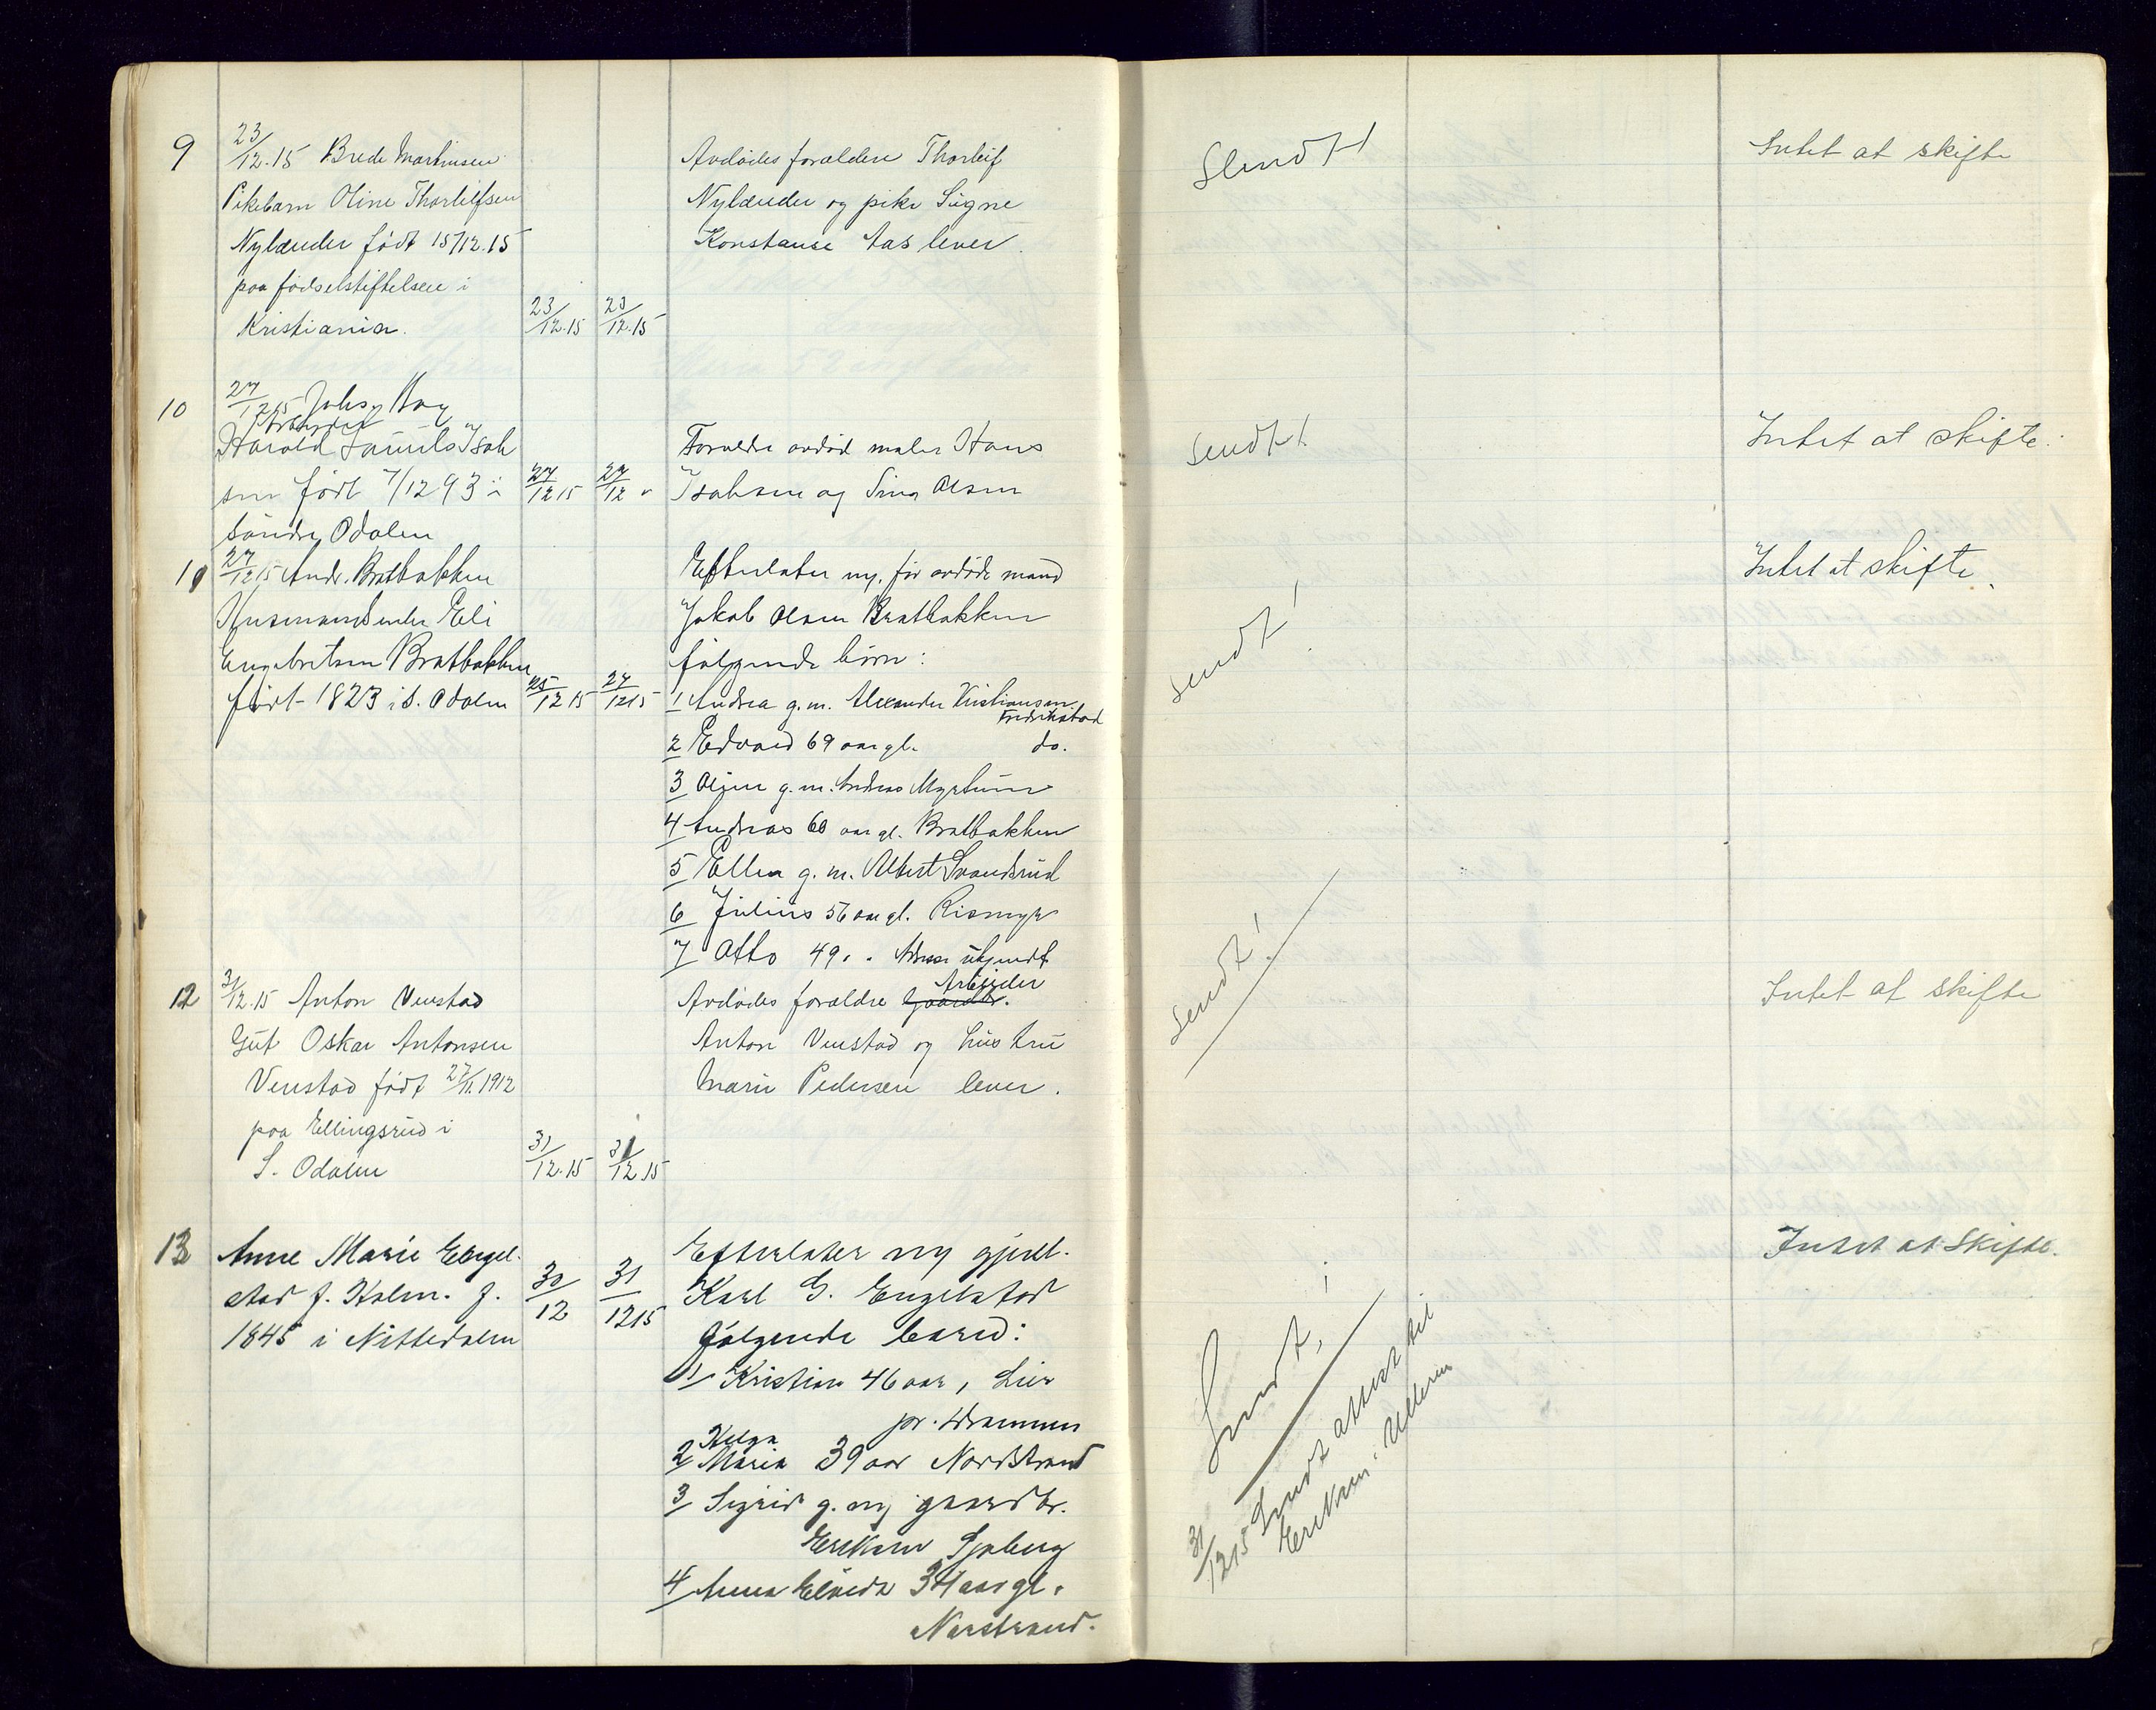 9
23/12.15 Brede Martinsen
Pikebarn Oline Thorleifsen
Nylænder født 15/12.15
paa fødselstiftelsen i
Kristiania.
23/12.15 23/12.15
Avdødes forældre Thorleif
Nylænder og pike Signe
Konstanse Aas lever.
Sendt!
Intet at skifte
10
27/12 15 Johs. Hag
Arbeider
Harald Isak
sen født 7/12 93 i
Søndre Odalen
27/12 15 27/12 "
Forældre avdød maler Hans
Isaksen og Sina Olsen
Sendt!
Intet at skifte.
11
27/12 15 Andr. Bratbakken
Husmandsenke Eli
Engebretsen Bratbakken
født 1823 i S. Odalen
25/12 15 27/12 15
Efterlater m. før avdøde mand
Jakob Olsen Bratbakken
følgende børn:
1 Andrea g.m. Alexander Kristiansen
Fredrikstad
2 Edvard 69 aar gl. do.
3 Oline g.m. Andreas Myrtun
4 Andreas 60 aar gl. Bratbakken
5 Ellen g.m. Albert Svandsrud
6 Julius 56 aar gl. Rismyr
7 Otto 49 " " Adresse ukjendt
Sendt!
Intet at skifte.
12
31/12.15 Anton Venstad
Gut Oskar Antonsen
Venstad født 27/11.1912
paa Ellingsrud i
S. Odalen
31/12.15 31/12 15
Arbeider
Avdødes forældre Gaardbr.
Anton Venstad og hustru
Marie Pedersen lever.
Sendt!
Intet at skifte
13
Anne Marie Engel-
stad f. Holm. f.
1845 i Nittedalen
30/12 31/12 15
Efterlater m gjenl.
Karl G. Engelstad
følgende barn:
1/ Kristian 46 aar, Lier
pr. Drammen
Helga
2/ Maria 39 aar Nordstrand
3/ Sigrid g. m gaardbr.
Eriksen Sjøberg
4/ Anna 34 aar gl.
Norstrand.
Sendt!
31/12 15 Sendt attest til
Eriksen. Ullern
Intet at skifte.